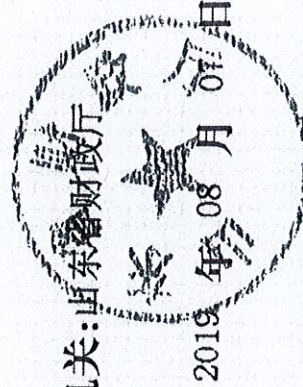 机关:山东省财政厅
2019 年 08 月 07 日